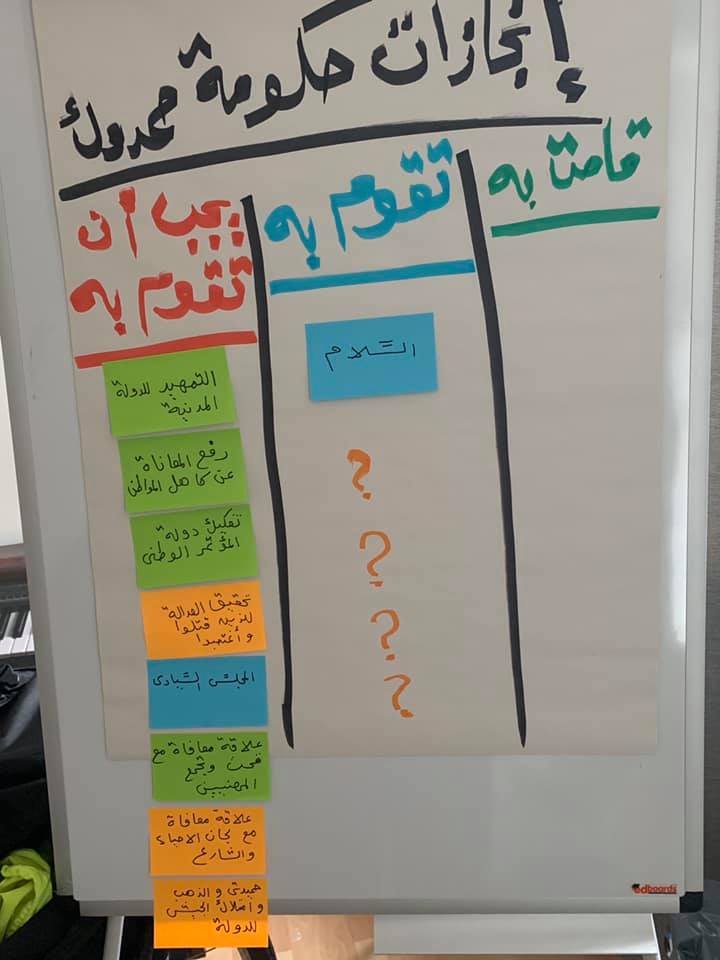 إنجازات حكومة حمدوك
قامت به
تقوم به
السَّلام
يجب أن
تقوم به
التمهيد للدولة
المدنية
رفع المعاناة
عن كاهل المواطن
تفكيك دولة
المؤتمر الوطني
تحقيق العدالة
للذين قتلوا
و أغتصبوا
المجلس السِّيادى
علاقة معافاة مع
قحت وتجمع
المهنيين
علاقة معافاة
مع لجان الاحياء
والشارع
حميدتى و الذهب
و املاك الجيش
للدولة
edboards